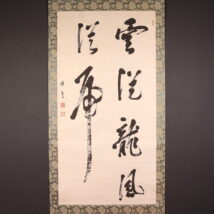 雲從龍風
從虎